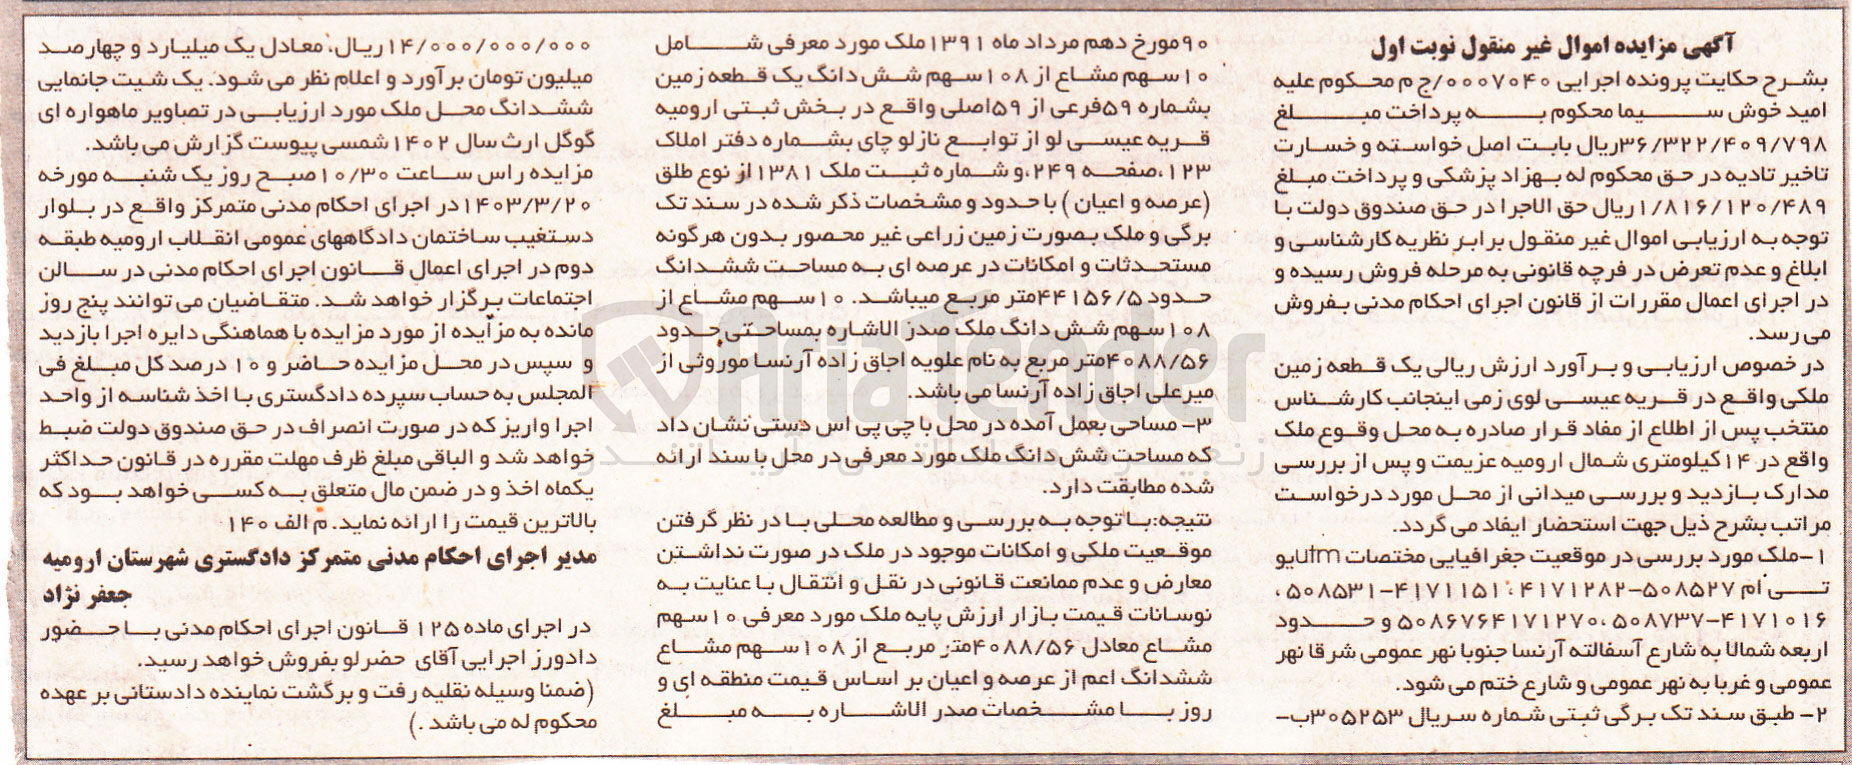 آگهی مزایده اموال غیر منقول نوبت اول
بشرح حکایت پرونده اجرایی ۰۰۰۷۰۴۰/ج م محکوم علیه
امید خوش سیما محکوم به پرداخت مبلغ
۳۶/۳۲۲/۴۰۹/۷۹۸ریال بابت اصل خواسته و خسارت
تاخیر تادیه در حق محکوم له بهزاد پزشکی و پرداخت مبلغ
۱/۸۱۶/۱۲۰/۴۸۹ریال حق الاجرا در حق صندوق دولت با
توجه به ارزیابی اموال غیر منقول برابر نظریه کارشناسی و
ابلاغ و عدم تعرض در فرجه قانونی به مرحله فروش رسیده و
در اجرای اعمال مقررات از قانون اجرای احکام مدنی بفروش
می رسد.
در خصوص ارزیابی و برآورد ارزش ریالی یک قطعه زمین
ملکی واقع در قریه عیسی لوی زمی اینجانب کارشناس
منتخب پس از اطلاع از مفاد قرار صادره به محل وقوع ملک
واقع در ۱۴کیلومتری شمال ارومیه عزیمت و پس از بررسی
مدارک بازدید و بررسی میدانی از محل مورد درخواست
مراتب بشرح ذیل جهت استحضار ایفاد می گردد.
۱-ملک مورد بررسی در موقعیت جغرافیایی مختصات utmیو
تی ام ۵۰۸۵۲۷-۴۱۷۱۲۸۲ ، ۴۱۷۱۱۵۱-۵۰۸۵۳۱ ،
۴۱۷۱۰۱۶-۵۰۸۷۳۷ ،۵۰۸۶۷۶۴۱۷۱۲۷۰ و حدود
اربعه شمالا به شارع آسفالته آرنسا جنوبا نهر عمومی شرقا نهر
عمومی و غربا به نهر عمومی و شارع ختم می شود.
۲- طبق سند تک برگی ثبتی شماره سریال ۳۰۵۲۵۳ب-
۹۰مورخ دهم مرداد ماه ۱۳۹۱ملک مورد معرفی شامل
۱۰سهم مشاع از ۱۰۸سهم شش دانگ یک قطعه زمین
بشماره ۵۹فرعی از ۵۹اصلی واقع در بخش ثبتی ارومیه
قریه عیسی لو از توابع نازلو چای بشماره دفتر املاک
۱۲۳،صفحه ۲۴۹،و شماره ثبت ملک ۱۳۸۱از نوع طلق
(عرصه و اعیان ) با حدود و مشخصات ذکر شده در سند تک
برگی و ملک بصورت زمین زراعی غیر محصور بدون هرگونه
مستحدثات و امکانات در عرصه ای به مساحت ششدانگ
حدود ۴۴۱۵۶/۵متر مربع میباشد. ۱۰سهم مشاع از
۱۰۸سهم شش دانگ ملک صدر الاشاره بمساحتی حدود
۴۰۸۸/۵۶متر مربع به نام علویه اجاق زاده آرنسا موروثی از
میرعلی اجاق زاده آرنسا می باشد.
۳- مساحی بعمل آمده در محل با جی پی اس دستی نشان داد
که مساحت شش دانگ ملک مورد معرفی در محل با سند ارائه
شده مطابقت دارد.
نتیجه:با توجه به بررسی و مطالعه محلی با در نظر گرفتن
موقعیت ملکی و امکانات موجود در ملک در صورت نداشتن
معارض و عدم ممانعت قانونی در نقل و انتقال با عنایت به
نوسانات قیمت بازار ارزش پایه ملک مورد معرفی ۱۰سهم
مشاع معادل ۴۰۸۸/۵۶متر مربع از ۱۰۸سهم مشاع
ششدانگ اعم از عرصه و اعیان بر اساس قیمت منطقه ای و
روز با مشخصات صدر الاشاره به مبلغ
۱۴/۰۰۰/۰۰۰/۰۰۰ریال، معادل یک میلیارد و چهارصد
میلیون تومان برآورد و اعلام نظر می شود. یک شیت جانمایی
ششدانگ محل ملک مورد ارزیابی در تصاویر ماهواره ای
گوگل ارث سال ۱۴۰۲شمسی پیوست گزارش می باشد.
مزایده راس ساعت ۱۰/۳۰صبح روز یک شنبه مورخه
۱۴۰۳/۳/۲۰در اجرای احکام مدنی متمرکز واقع در بلوار
دستغیب ساختمان دادگاههای عمومی انقلاب ارومیه طبقه
دوم در اجرای اعمال قانون اجرای احکام مدنی در سالن
اجتماعات برگزار خواهد شد. متقاضیان می توانند پنج روز
مانده به مزایده از مورد مزایده با هماهنگی دایره اجرا بازدید
و سپس در محل مزایده حاضر و ۱۰ درصد کل مبلغ فی
المجلس به حساب سپرده دادگستری با اخذ شناسه از واحد
اجرا واریز که در صورت انصراف در حق صندوق دولت ضبط
خواهد شد و الباقی مبلغ ظرف مهلت مقرره در قانون حداکثر
یکماه اخذ و در ضمن مال متعلق به کسی خواهد بود که
بالاترین قیمت را ارائه نماید. م الف ۱۴۰
مدیر اجرای احکام مدنی متمرکز دادگستری شهرستان ارومیه
جعفر نژاد
در اجرای ماده ۱۲۵ قانون اجرای احکام مدنی با حضور
دادورز اجرایی آقای حضرلو بفروش خواهد رسید.
(ضمنا وسیله نقلیه رفت و برگشت نماینده دادستانی بر عهده
محکوم له می باشد .)
AriaTender